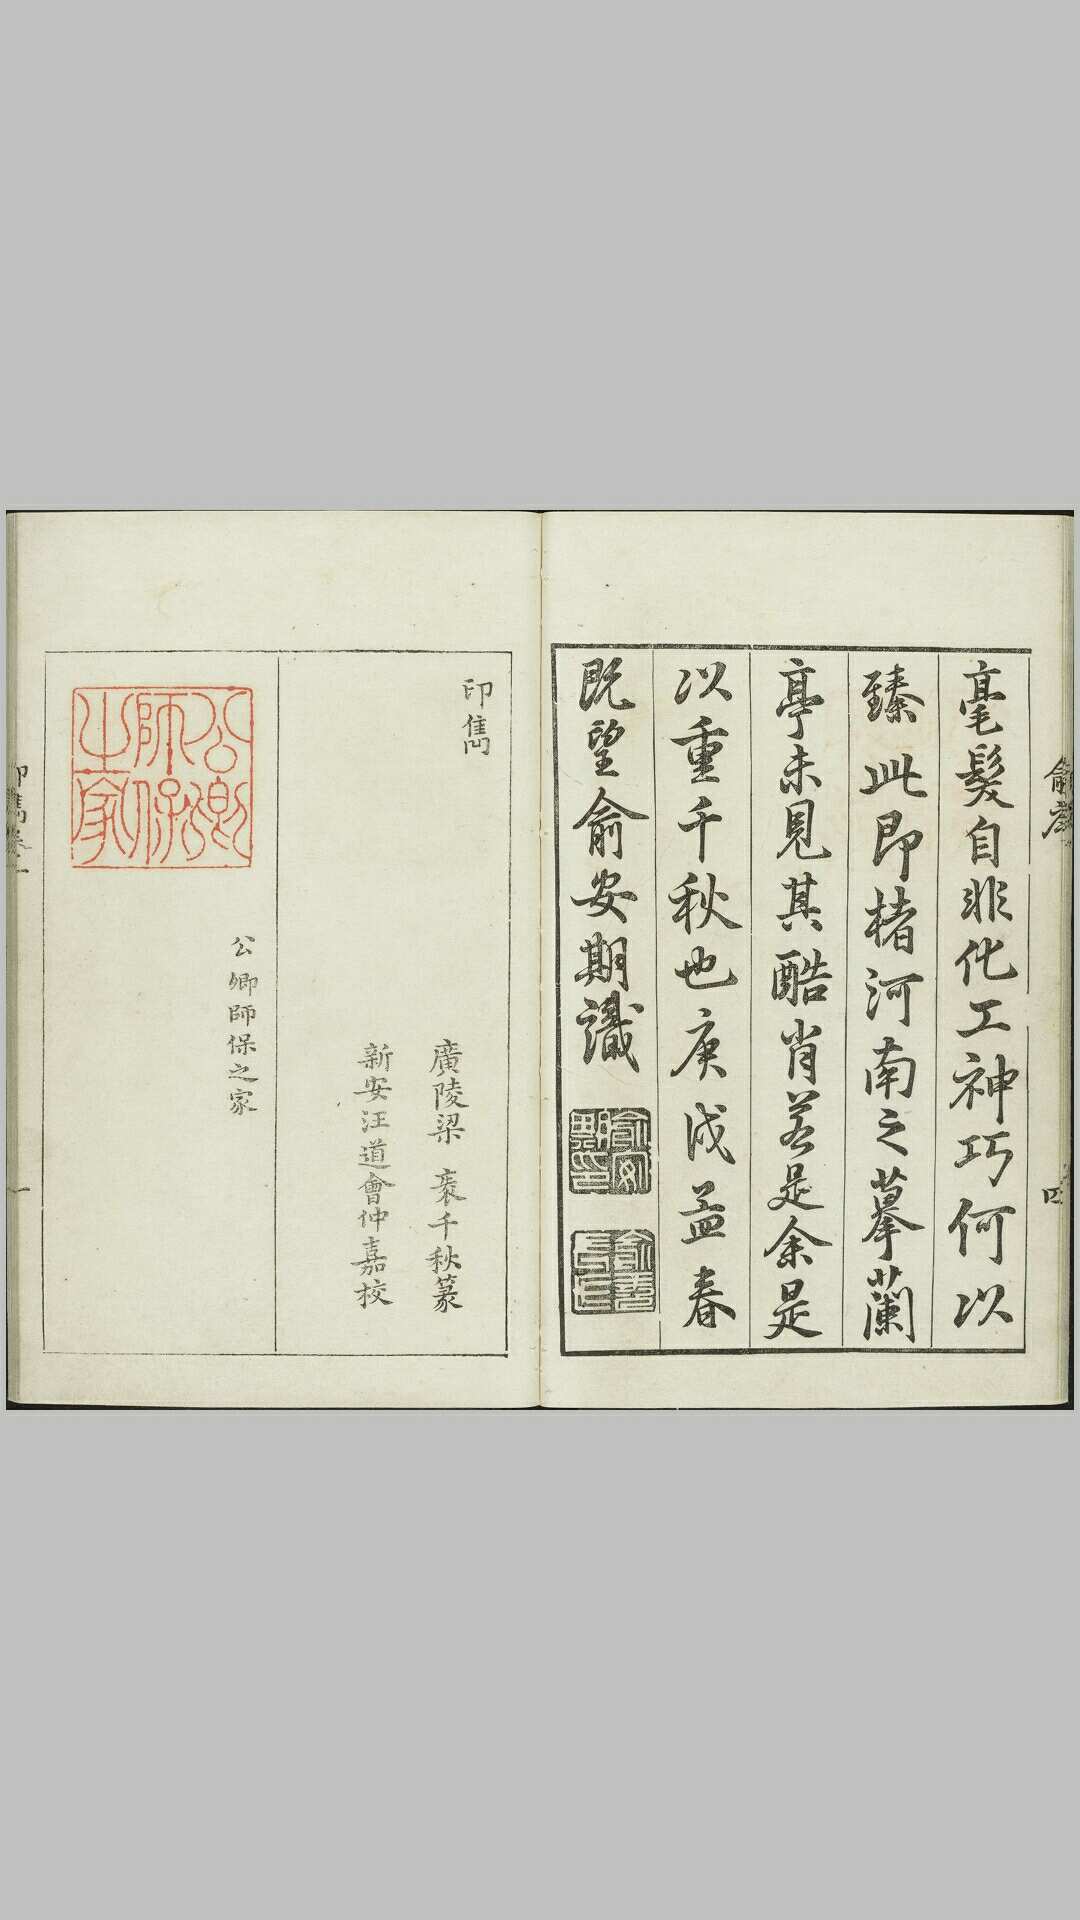 毫髮自非化工神巧何以
臻此即楮河南之摹蘭
亭未見其酷肖若是余是
以重千秋也庚戌孟春
既望俞安期識
印雋
廣陵梁袠千秋篆
新安汪道會仲嘉校
公卿師保之家
公卿師保之家
四
印雋卷一
一